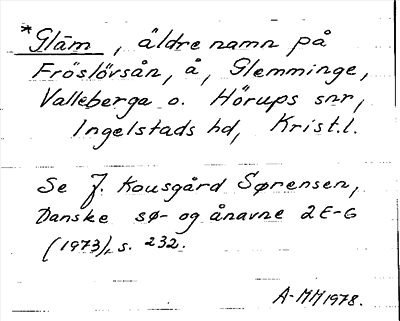 *Glām, äldre namn på
Fröslövsån, å, Glemminge,
Valleberga o. Hörups snr,
Ingelstads hd, Krist.l.
Se J. Kousgård Sørensen,
Danske sø- og ånavne 2E-G
(1973), s. 232.
A-MM 1978.